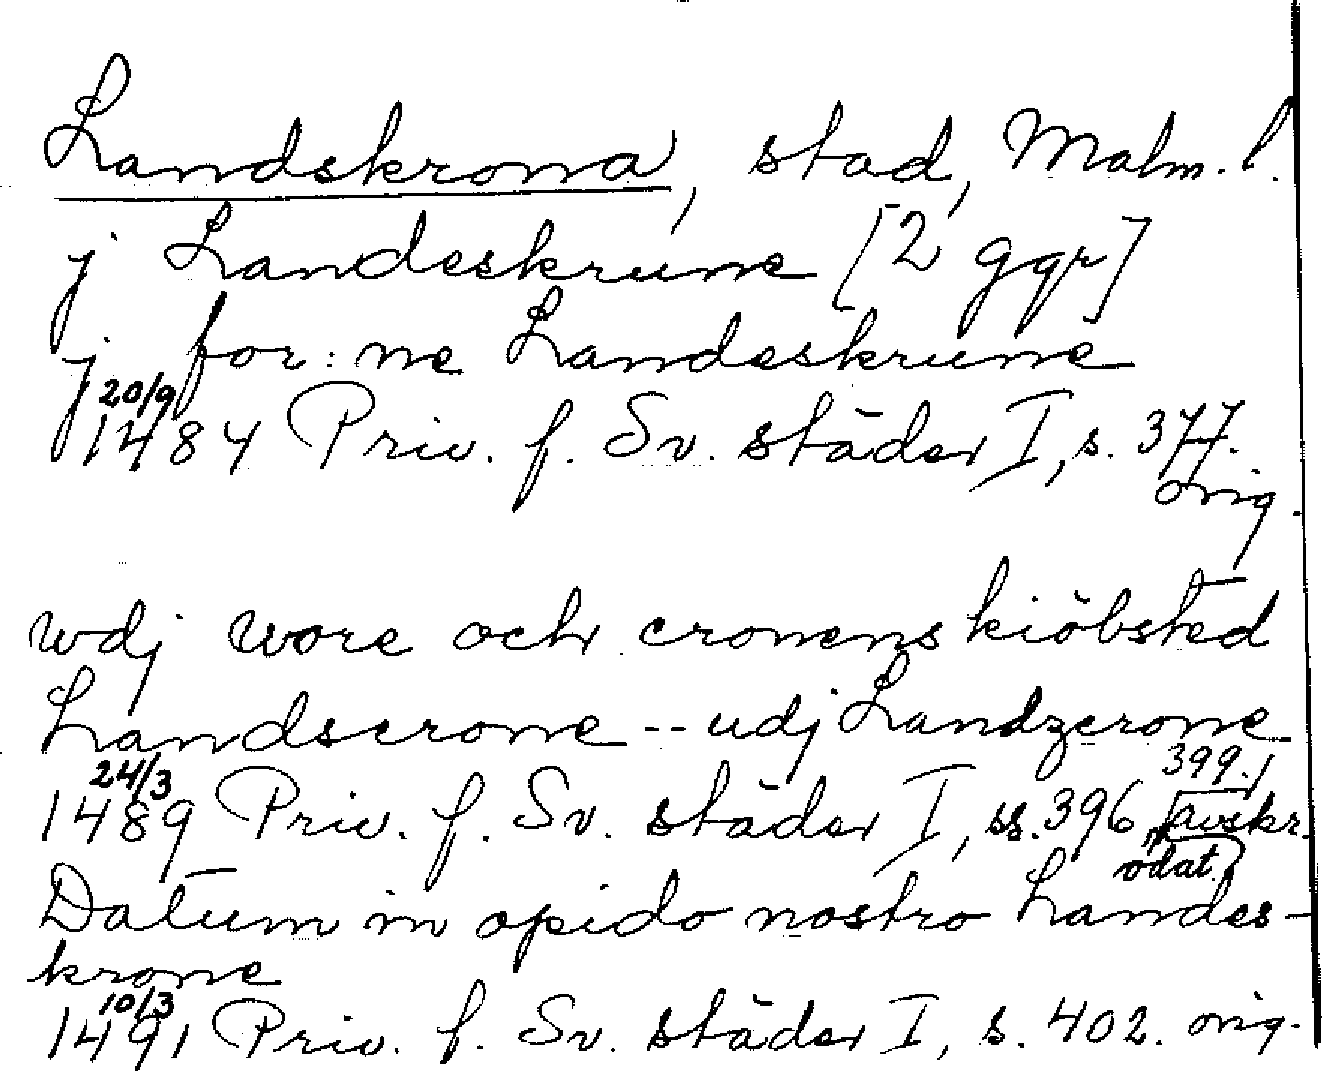 Landskrona, stad, Malm. l.
j Landeskrune [2 ggr]
j for: ne Landeskrune
20/9
1484 Priv. f. Sv. städer I, s. 377.
orig.
wdj wore och cronens kiöbsted
Landscrone -- udj Landzcrone
24/3 399.
1489 Priv. f. Sv. städer I, ss. 396, avskr.
odat.
Datum in opido nostro Landes-
krone
10/3
1491 Priv. f. Sv. städer I, s. 402. orig.